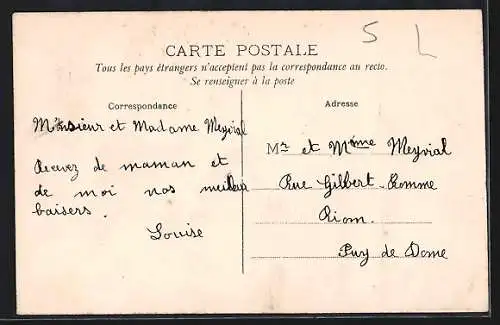 5 L
CARTE POSTALE
Tous les pays étrangers n'acceptent pas la correspondance au recto.
Se renseigner à la poste
Correspondance
Monsieur et Madame Meyvial
Recevez de maman et
de moi nos meilleurs
baisers.
Louise
Adresse
Mr et Mme Meyvial
Rue Gilbert-Romme
Riom.
Puy de Dome